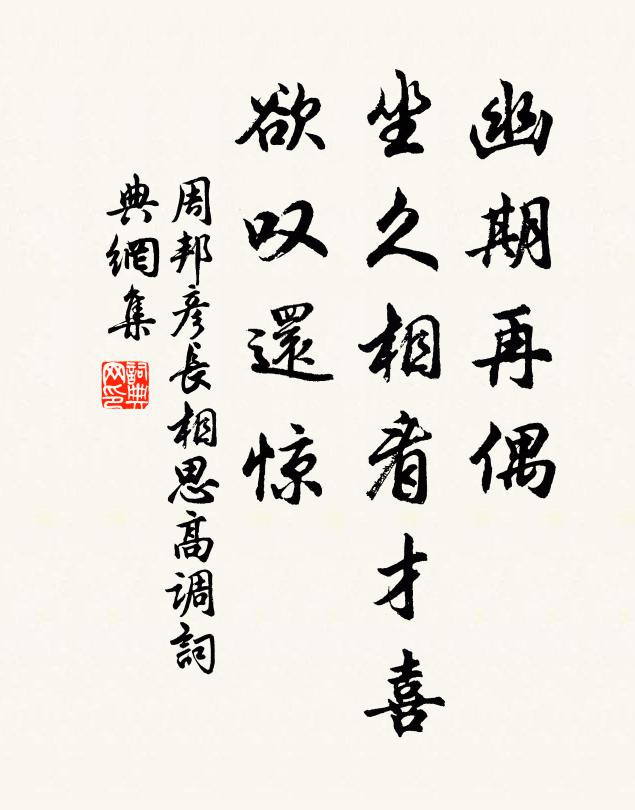 幽期再偶
坐久相看才喜
欲叹還惊
周邦彦長相思高調詞
典網集
詞典
网印